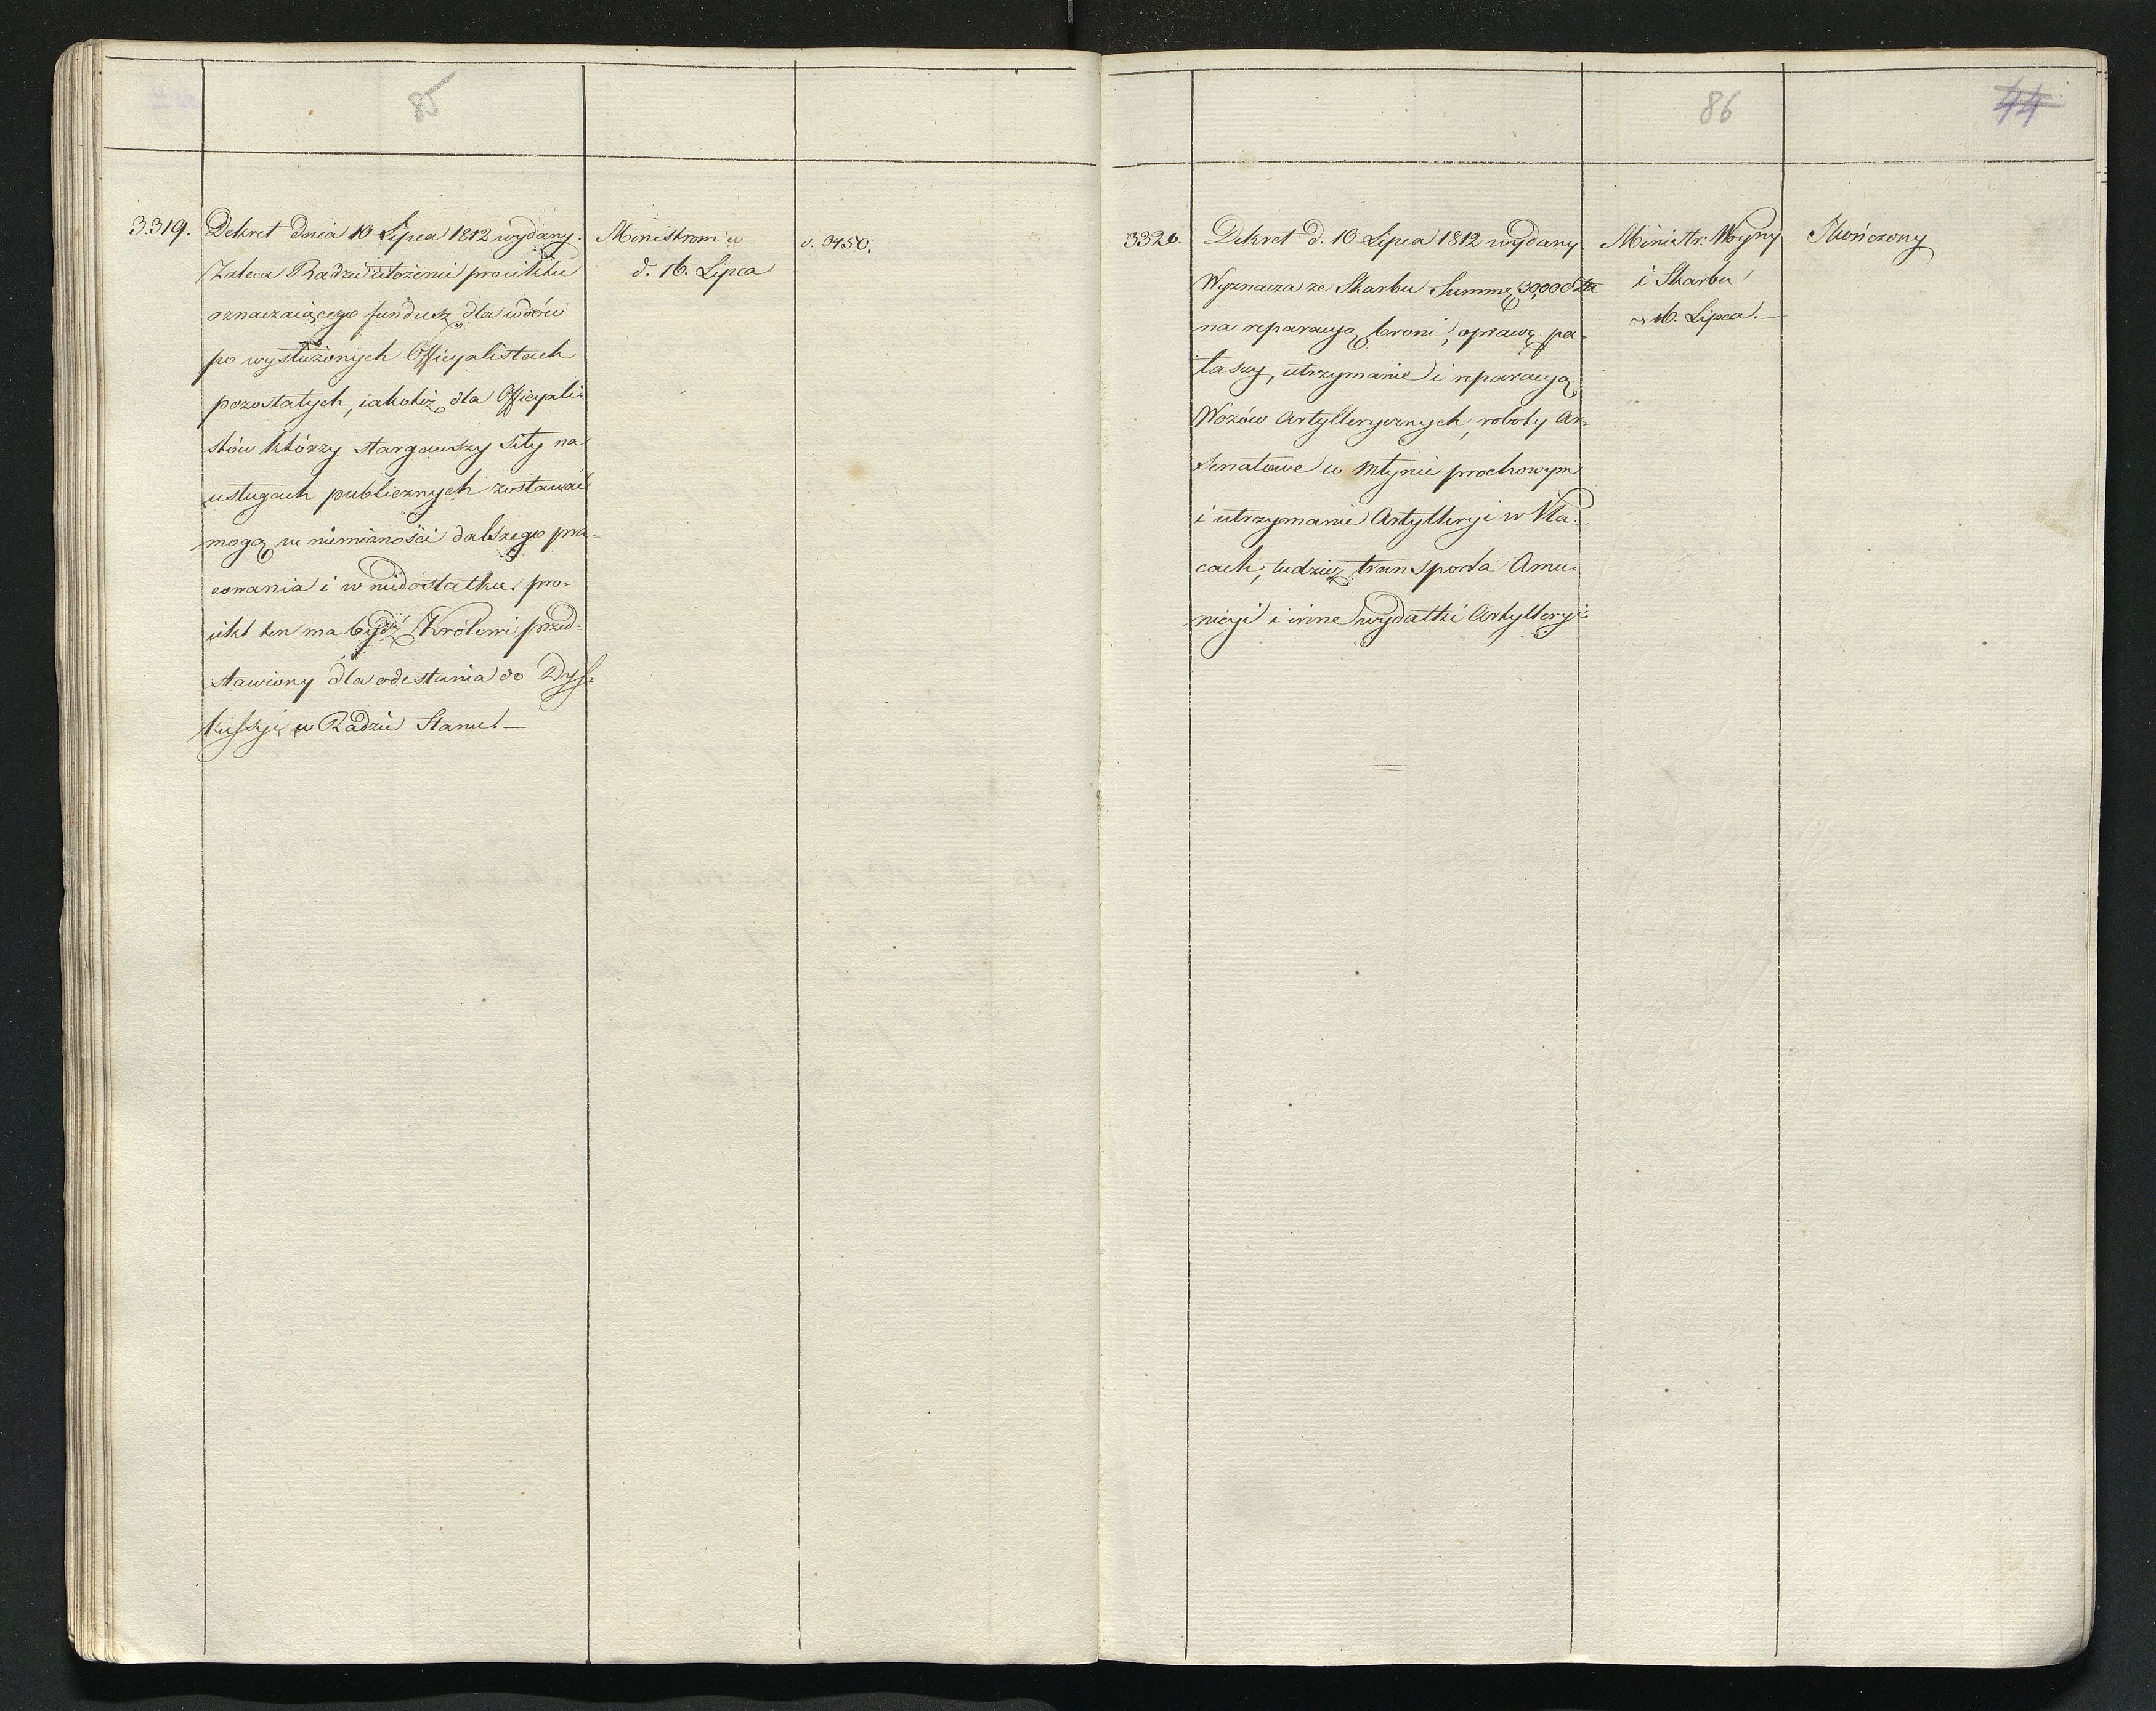 85
3.319.
Dekret dnia 10 Lipca 1812 wydany.
Zaleca Radzie ułożenie proiektu
oznaczaiącego fundusz dla wdów
po wysłużonych Officyalistach
pozostałych, iakoteż dla Officyali-
stów którzy stargawszy siły na
usługach publicznych zostawać
mogą w niemożności dalszego pra-
cowania i w niedostatku. pro-
iekt ten ma bydź Królowi przed-
stawiony dla odesłania do Dys-
kussyi w Radzie Stanu. —
Ministrom
d. 16. Lipca
v. 3450.
86
44
3320.
Dekret d. 10 Lipca 1812 wydany.
Wyznacza ze Skarbu Summę 30,000 Zł
na reparacyą broni, oprawę pa-
łaszy, utrzymanie i reparacyą
Wozów Artyllerycznych, roboty Ar-
senałowe w młynie prochowym
i utrzymanie Artylleryi w Pla-
cach, tudzież transporta Amu-
nicyi i inne wydatki Artylleryi-
Ministr: Woyny
i Skarbu
16. Lipca. —
Skończony